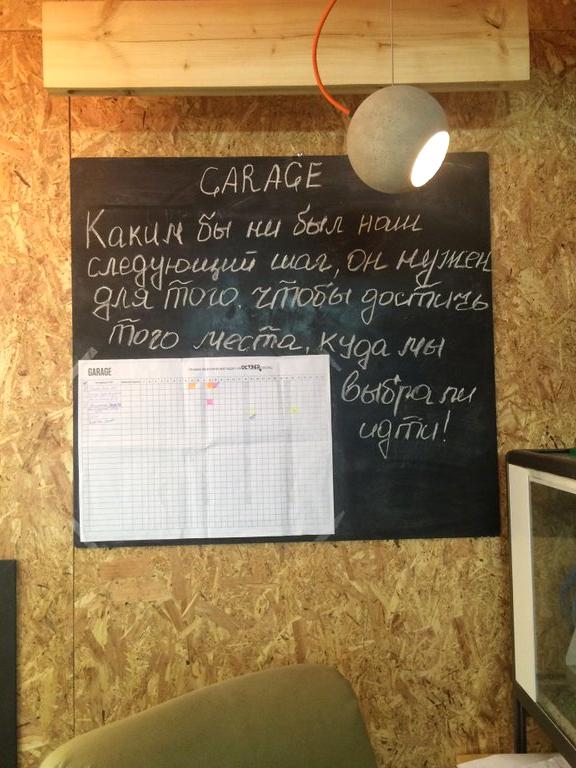 GARAGE
Каким бы ни был наш
следующий шаг, он нужен
для того, чтобы достичь
того места, куда мы
выбрали
идти!
GARAGE
OCTOBER